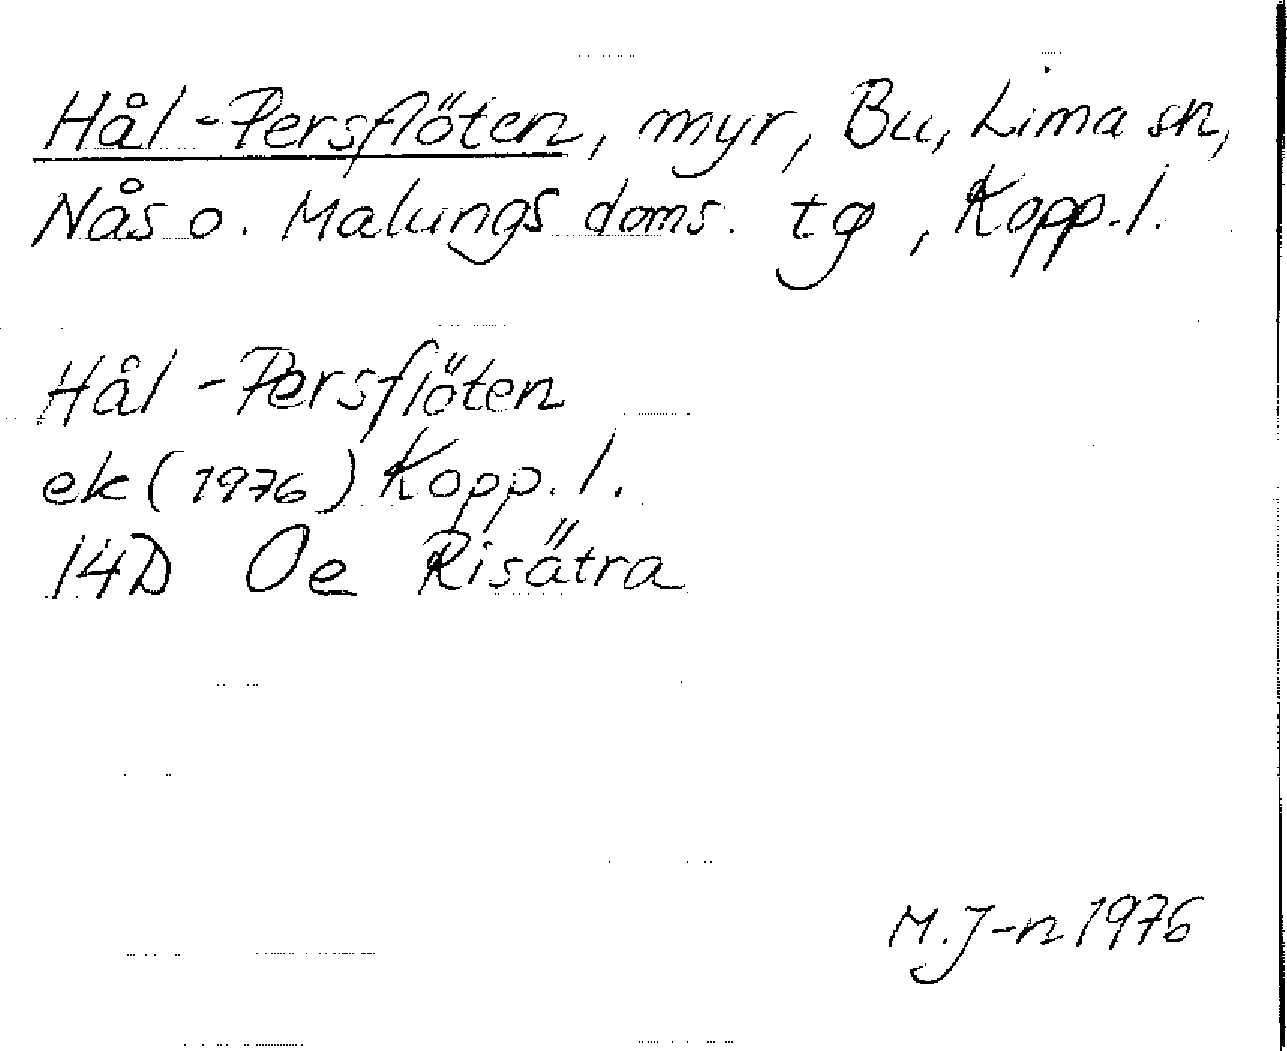 Hål-Persflöten, myr, Bu, Lima sn,
Nås o. Malungs doms. tg, Kopp. l.
Hål-Persflöten
ek (1976) Kopp. l.
14D Oe Risätra
M. J-n 1976